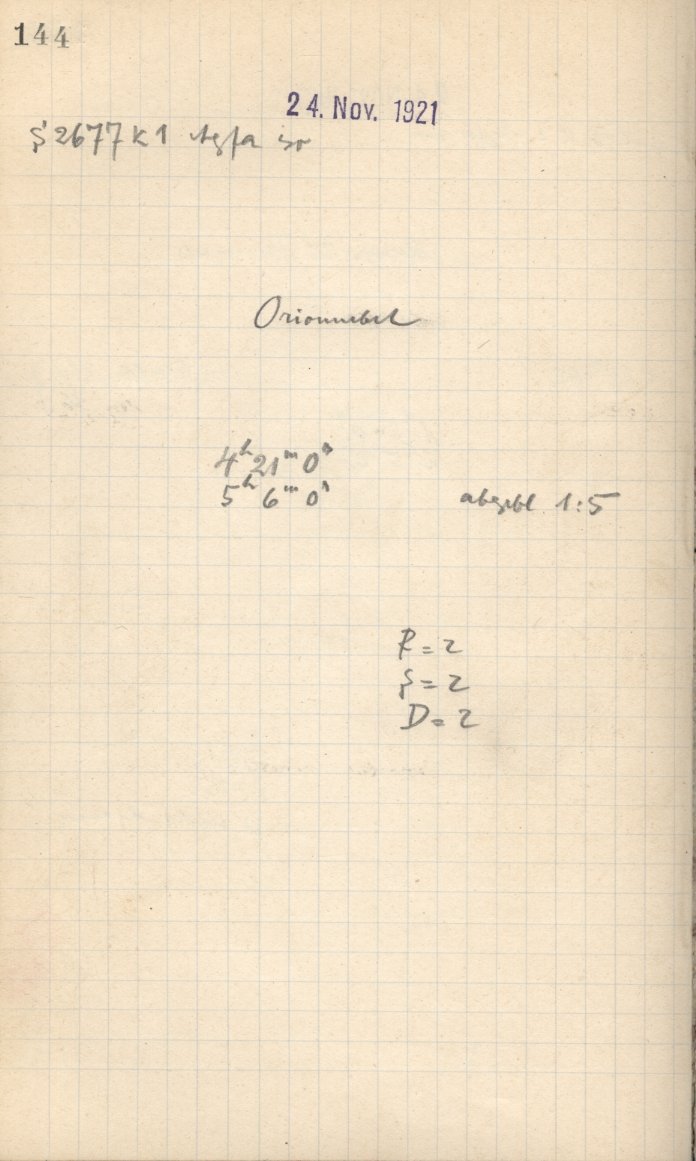 144
24. Nov. 1921
S 2677 k 1 Agfa iso
Orionnebel
4h 21m 0s
5h 6m 0s
abgebl 1:5
R = 2
S = 2
D = 2